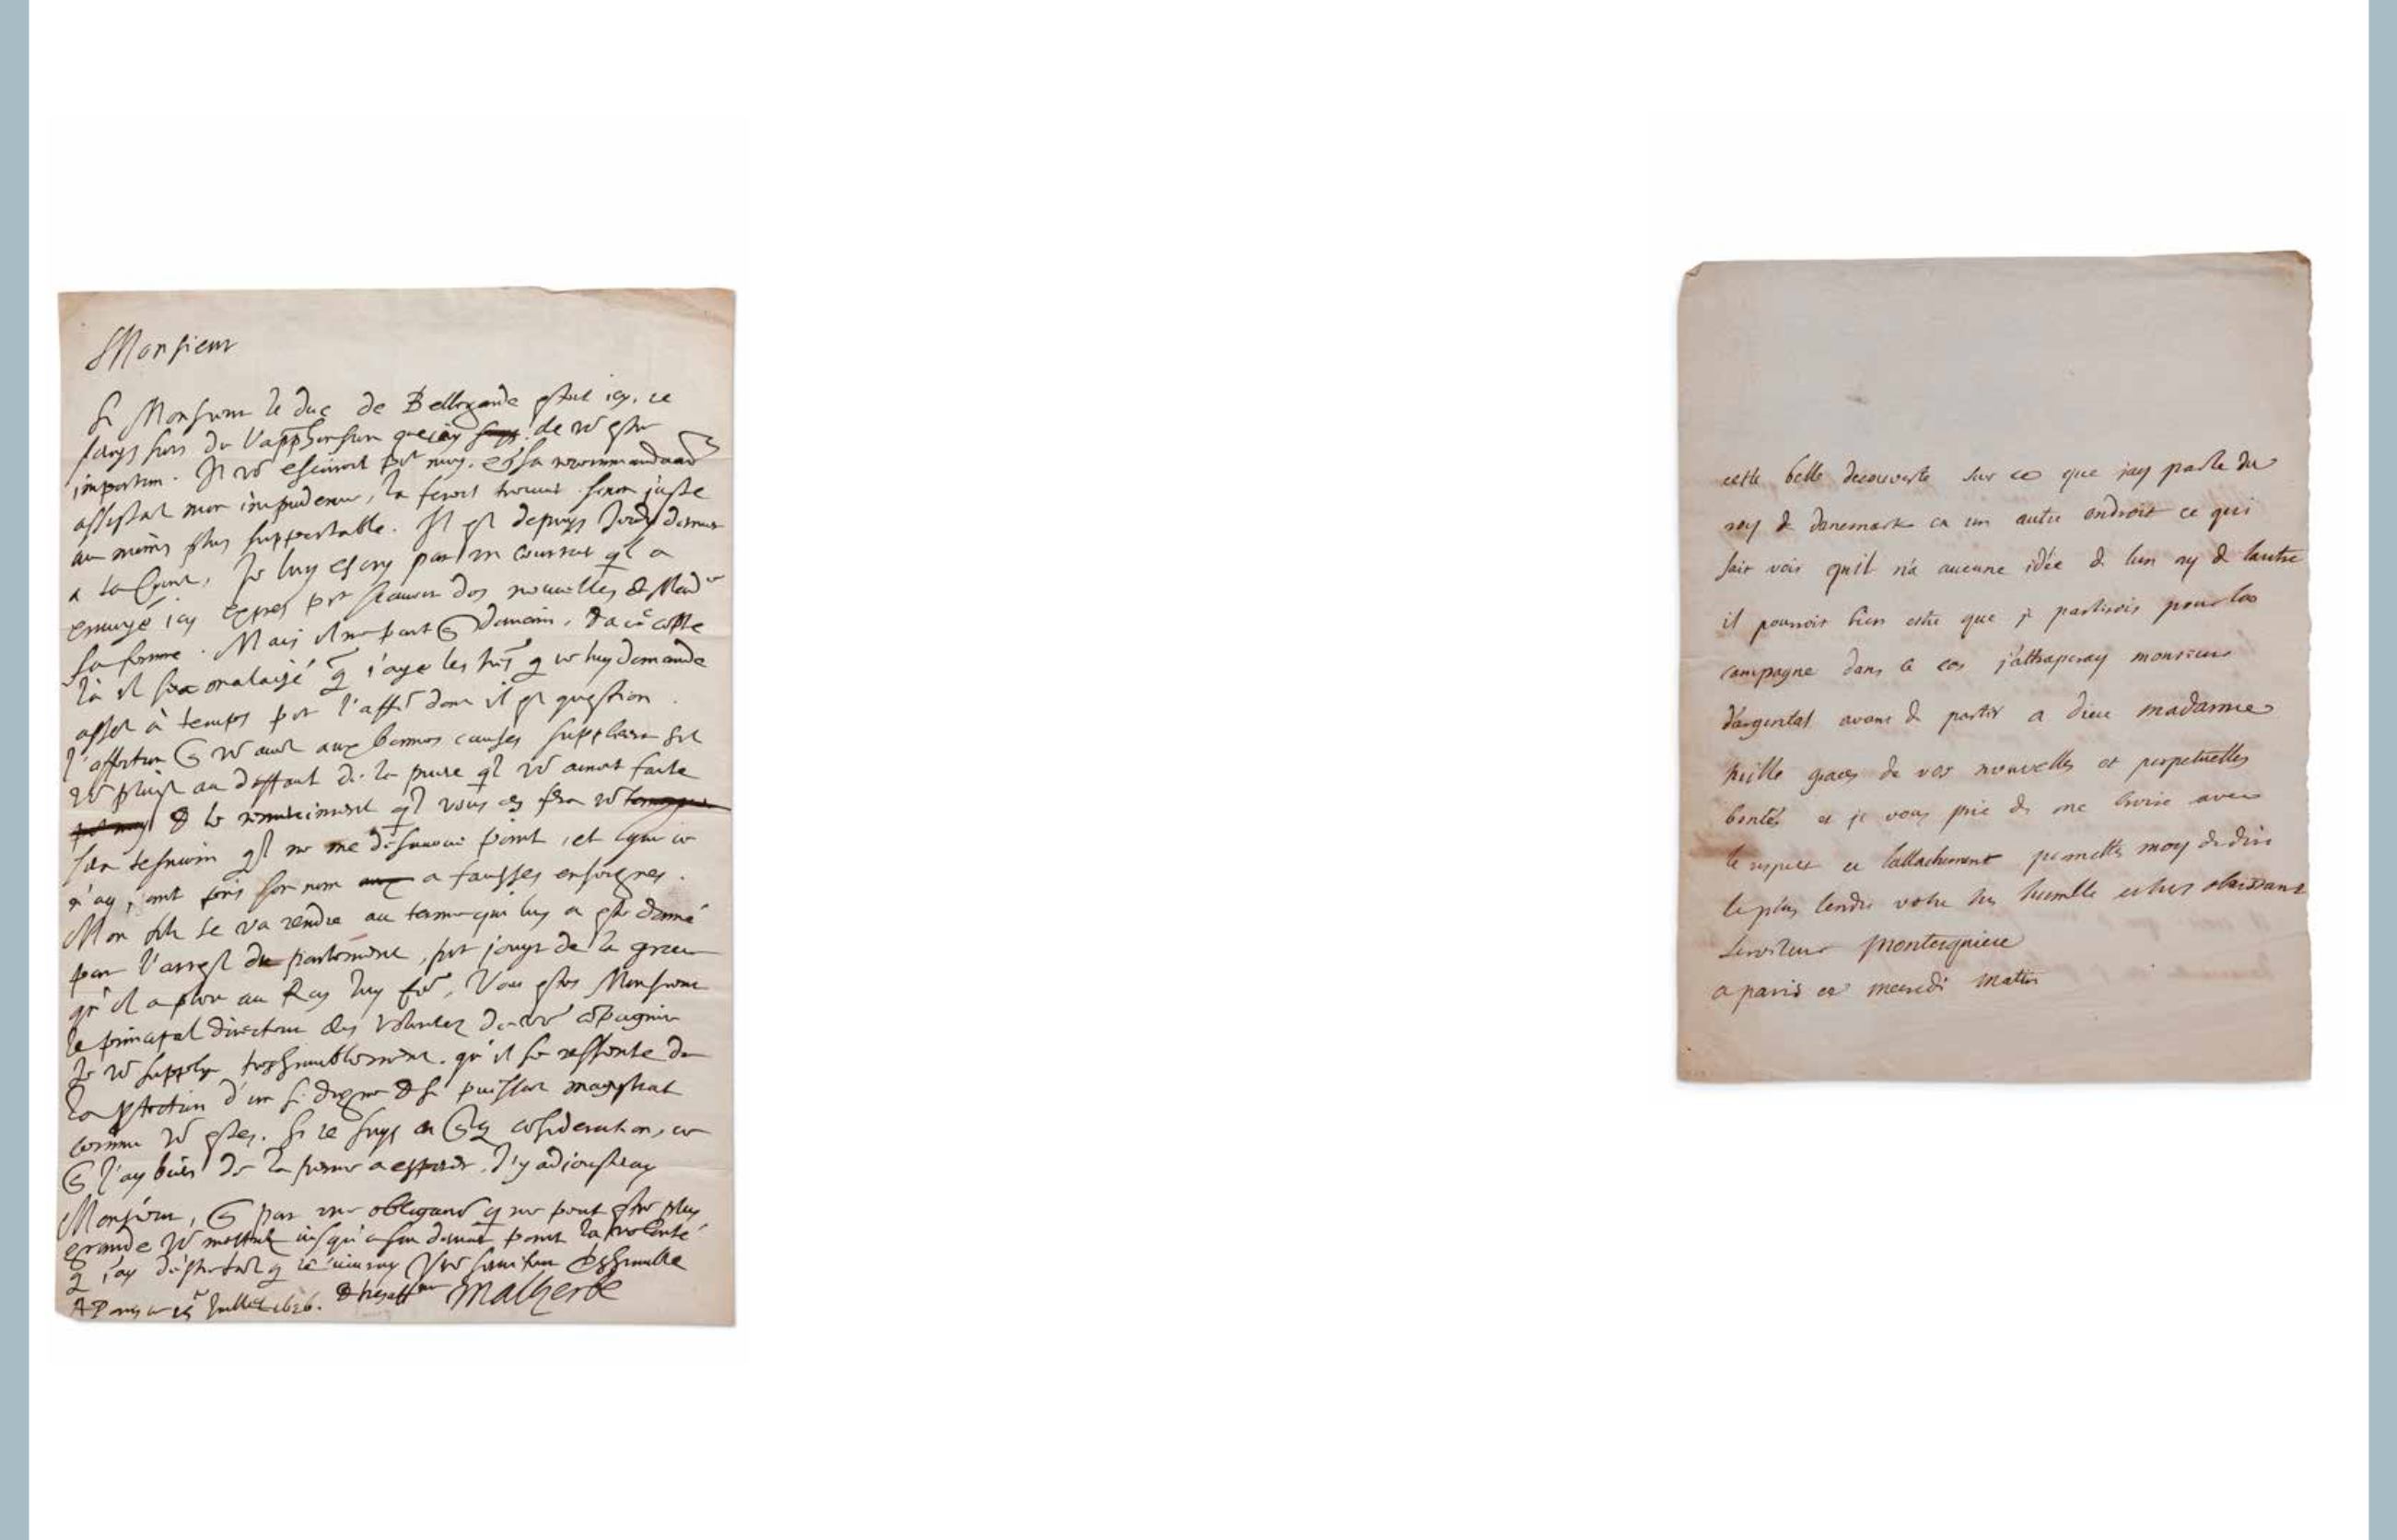 Monsieur
Si Monsieur le duc de Bellegarde estoit icy, ie
serois hors de l'apprehension que i'ay de vo' estre
importun. Il vo' escriroit po^r moy, et sa recommandaon
assistant mon impudence, la feroit trouver sinon juste
au moins plus supportable. Il est depuys Jeudy dernier
a la Court, Je luy escry par un courrier q'il a
envoyé icy expres po^r sçavoir des nouvelles de Mad^e
sa femme. Mais il ne part demain, de ce costé
là il sera malaisé q̃ i'aye les q ie luy demande
assez à temps po^r l'aff^re dont il est question.
l'affection vo' avez aux bonnes causes suppleera s'il
vo' plaist au deffault de la priere q'l vo' auroit faite
& le remerciment q'l vous en fera vo'
sera tesmoin q'l ne me desavoue point, et que ie
n'ay point pris son nom a fausses enseignes.
Mon fils se va rendre au terme qui luy a esté donné
par l'arrest du parlement, po^r jouyr de la grace
qu'il a pleu au Roy luy fe^re, Vous estes Monsieur
le principal directeur des volontez de vo^e cõpagnie
Je vo' supply treshumblement qu'il se ressente de
la p̱tection d'un si digne & si puissant magistrat
comme vo' estes. Si ie suys en cõsideration, ce
i'ay bien de la peine a esperer, J'y adiousteray
Monsieur, par une obligaõn q ne peut estre plus
grande vo' mettrez iusqu'a son dernier point la volonté
q i'ay d'estre tant q ie vivray Vre serviteur treshumble
A Paris ce Juillet 1626. & tresaff^ne Malherbe
cette belle decouverte sur ce que jay parle du
roy de danemark en un autre endroit ce qui
fait voir quil n'a aucune idée de lun ny de lautre
il pourroit bien estre que je partirois pour la
campagne dans ce cas j'attraperay monsieur
d'argental avant de partir a dieu madame
mille graces de vos nouvelles et perpetuelles
bontés et je vous prie de me croire avec
le respect et lattachement permettes moy de dire
le plus tendre votre tres humble et tres obeissant
serviteur Montesquieu
a paris ce mercredi matin